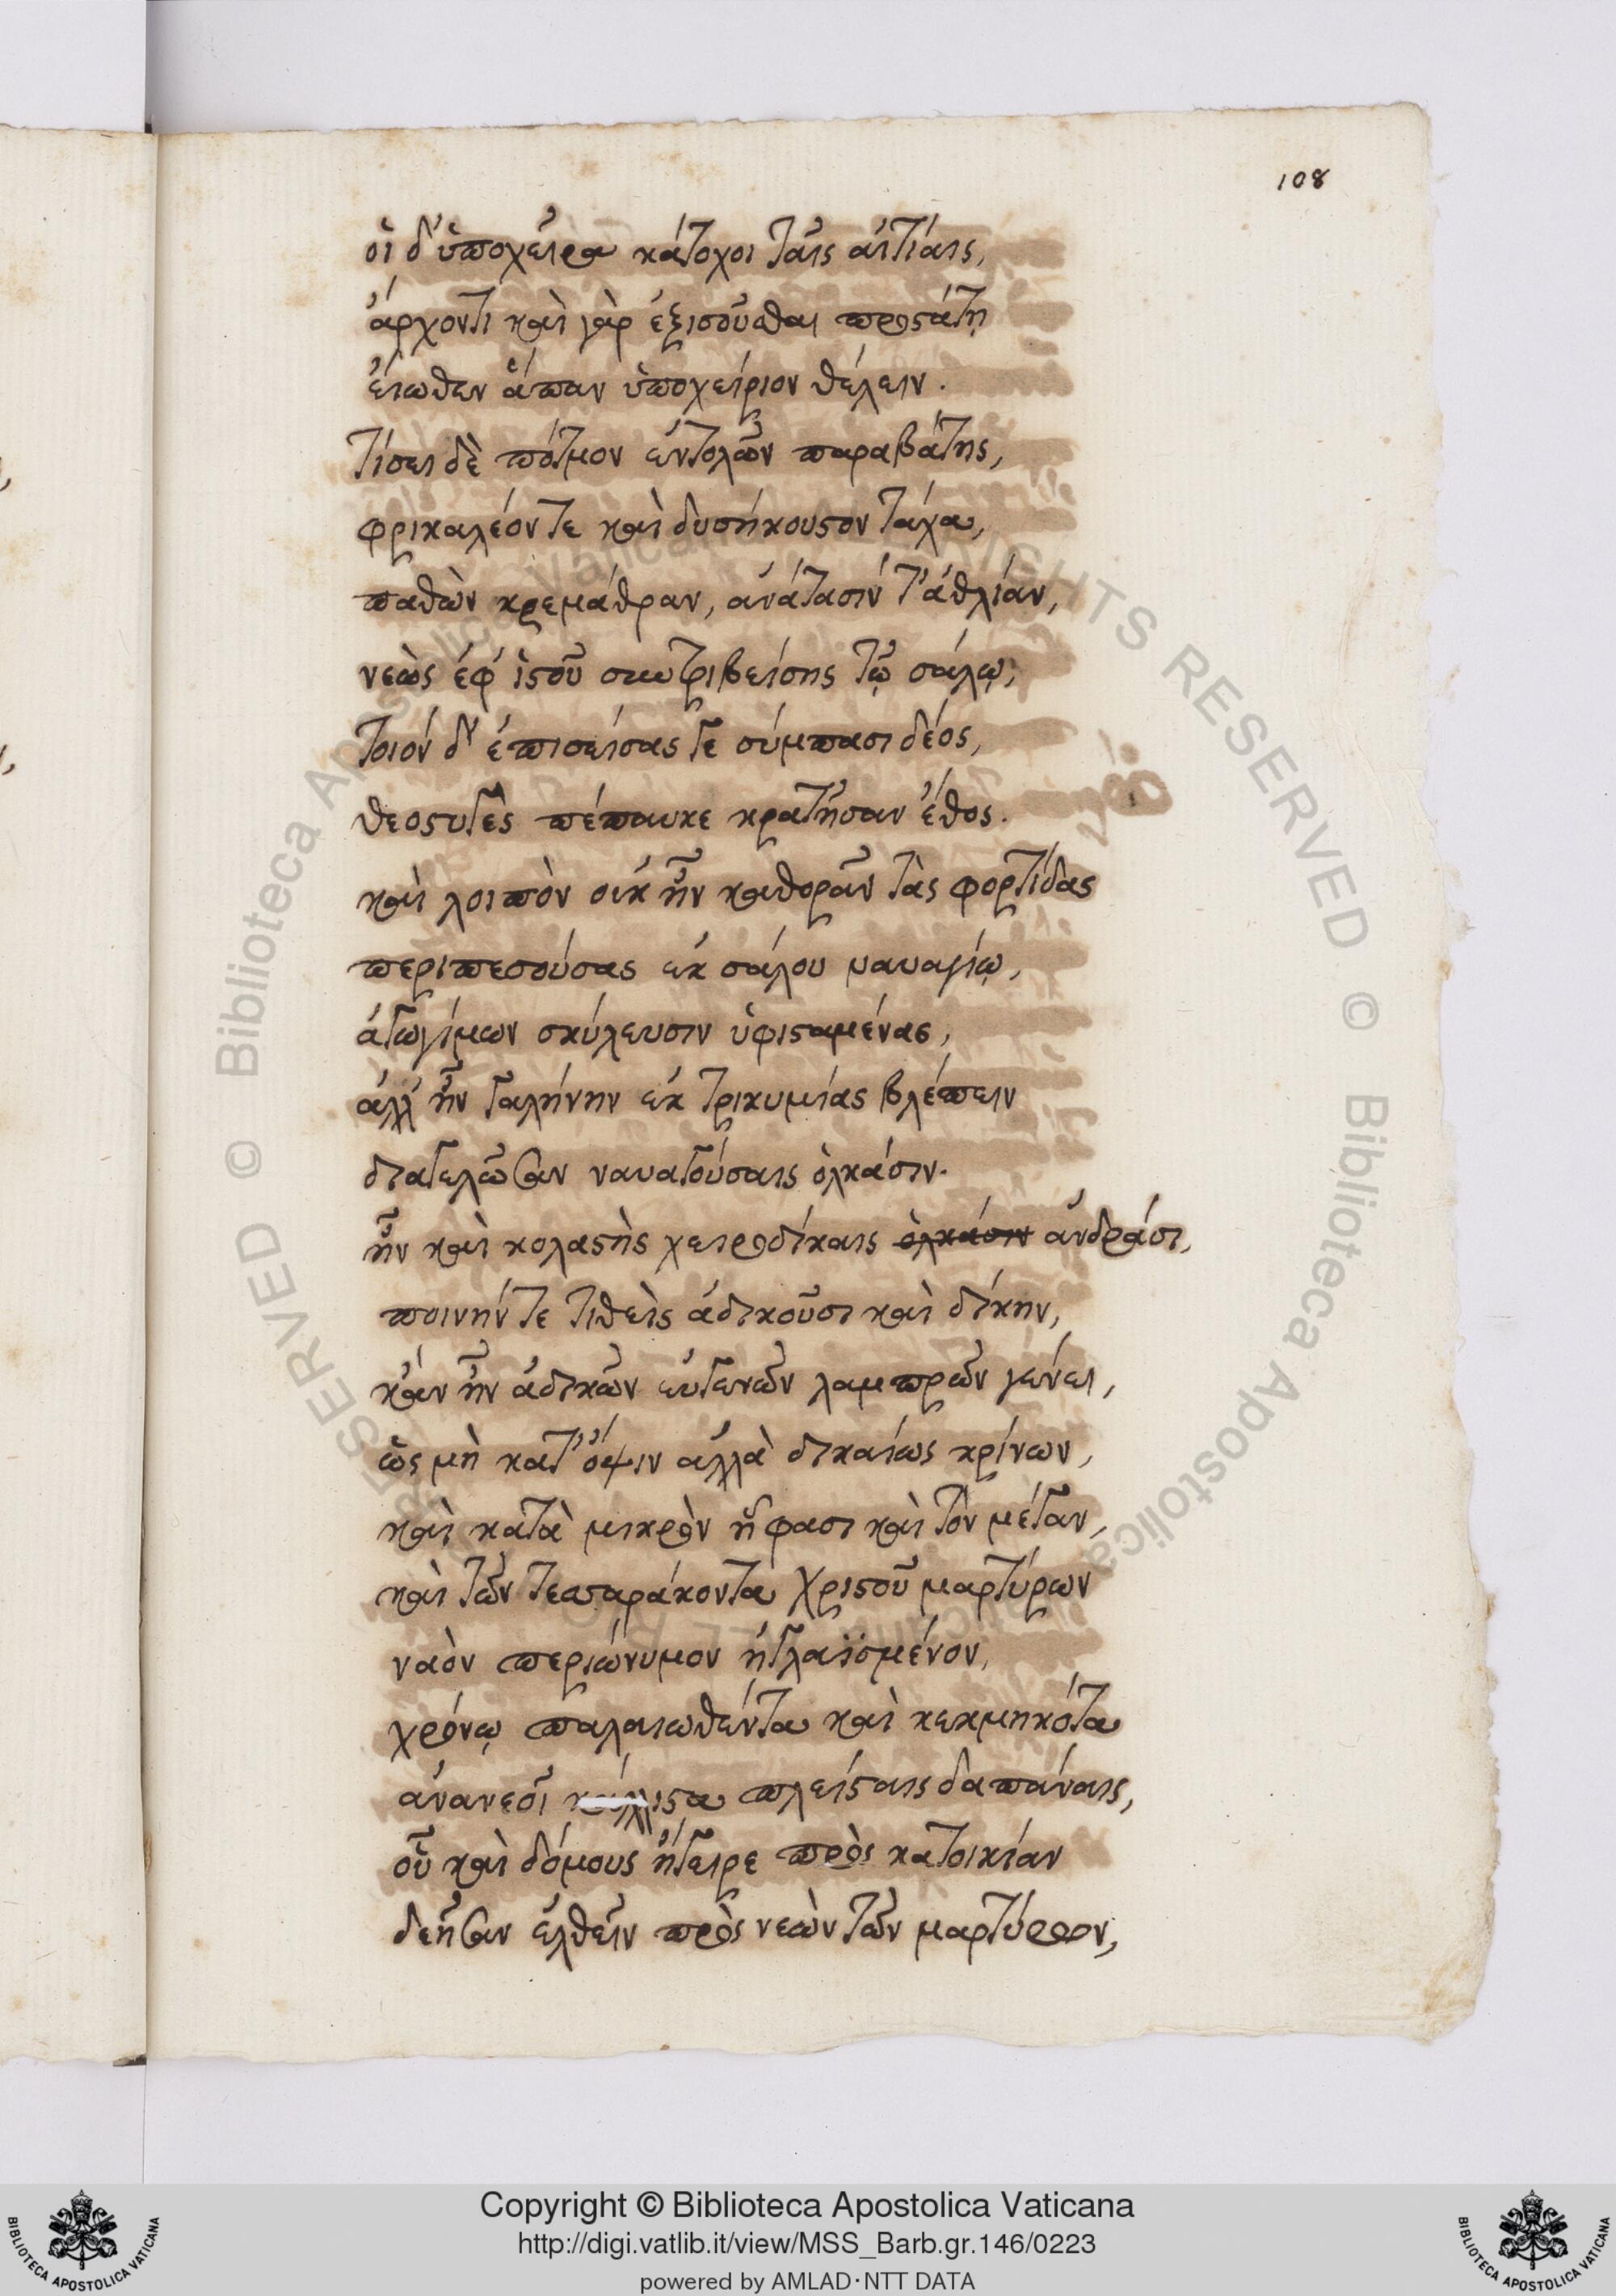 108
οἱ δ' ὑποχείρα κάτοχοι ταῖς αἰτίαις,
ἄρχοντι καὶ γὰρ ἐξισοῦσθαι προστάτῃ
εἴωθεν ἅπαν ὑποχείριον θέλειν.
τίσει δὲ πότμον ἐντολῶν παραβάτης,
φρικαλέον τε καὶ δυσήκουστον τάχα,
παθὼν κρεμάθραν, ἀνάτασίν τ' ἀθλίαν,
νεὼς ἐφ' ἱστοῦ συντριβείσης τῷ σάλῳ,
τοιόν δ' ἐπισείσας γε σύμπασι δέος,
θεοστυγὲς πέπαυκε κρατῆσαν ἔθος.
καὶ λοιπὸν οὐκ ἦν καθορᾶν τὰς φορτίδας
περιπεσούσας ἐκ σάλου ναυαγίῳ,
ἀγωγίμων σκύλευσιν ὑφισταμένας,
ἀλλ' ἦν γαλήνην ἐκ τρικυμίας βλέπειν
διαγελῶσαν ναυαγούσαις ὁλκάσιν.
ἦν καὶ κολαστὴς χειροδίκαις ὁλκάσιν ἀνδράσι,
ποινήν τε τιθεὶς ἀδικοῦσι καὶ δίκην,
κἂν ἦν ἀδικῶν εὐγενῶν λαμπρῶν γένει,
ὡς μὴ κατ' ὄψιν ἀλλὰ δικαίως κρίνων,
καὶ κατὰ μικρὸν ᾗ φασι καὶ τὸν μέγαν,
καὶ τῶν τεσσαράκοντα Χριστοῦ μαρτύρων
ναὸν περιώνυμον ἠγλαϊσμένον,
χρόνῳ παλαιωθέντα καὶ κεκμηκότα
ἀνανεοῖ κάλλιστα πλείσταις δαπάναις,
οὗ καὶ δόμους ἤγειρε πρὸς κατοικίαν
δεῆσαν ἐλθεῖν πρὸς νεὼν τῶν μαρτύρων,
Copyright © Biblioteca Apostolica Vaticana
http://digi.vatlib.it/view/MSS_Barb.gr.146/0223
powered by AMLAD·NTT DATA